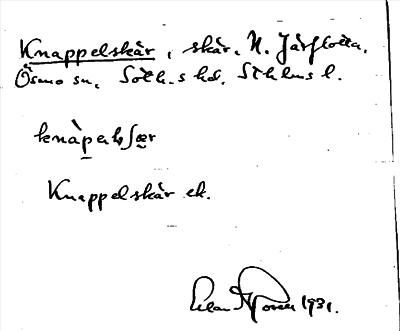 Knappelskär, skär, N. Järflotta.
Ösmo sn, Soth-s hd. Sthlms l.
knàpelʃær
Knappelskär ek.
1931.